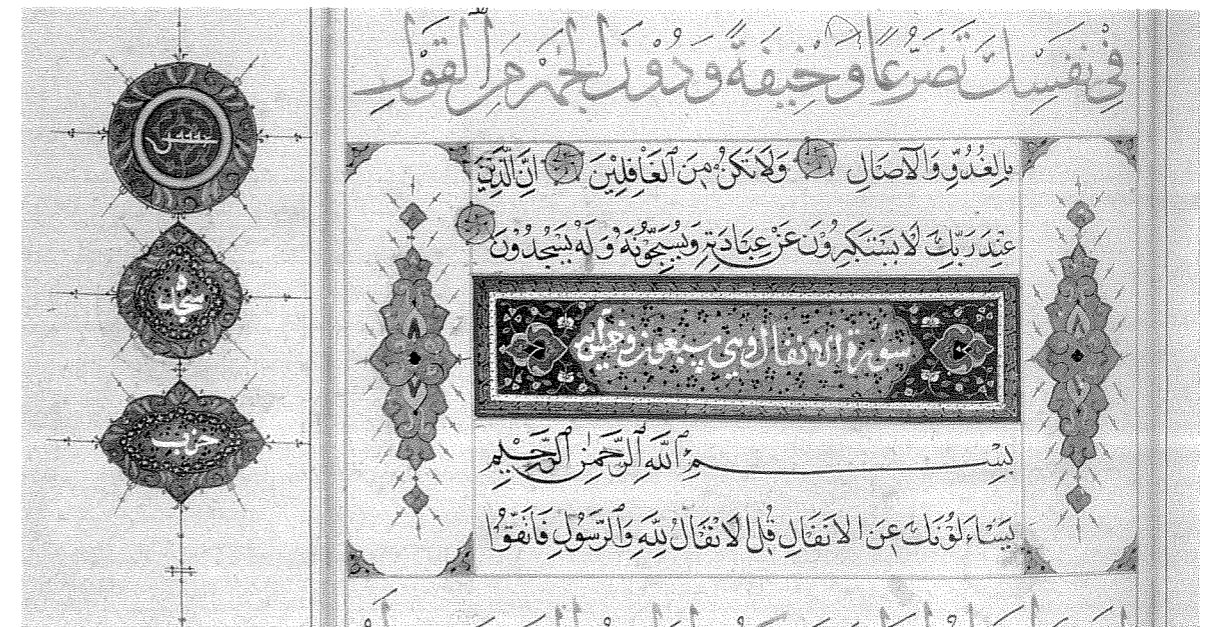 فِي نَفْسِكَ تَضَرُّعًا وَخِيفَةً وَدُوْنَ الْجَهْرِ مِنَ الْقَوْلِ
بِالْغُدُوِّ وَالْآصَالِ وَلَا تَكُنْ مِنَ الْغَافِلِيْنَ اِنَّ الَّذِيْنَ
عِنْدَ رَبِّكَ لَا يَسْتَكْبِرُوْنَ عَنْ عِبَادَتِهِ وَيُسَبِّحُوْنَهُ وَلَهُ يَسْجُدُوْنَ
سورة الانفال وهي سبعون و
بِسْمِ اللَّهِ الرَّحْمَنِ الرَّحِيْمِ
يَسْاَلُوْنَكَ عَنِ الْاَنْفَالِ قُلِ الْاَنْفَالُ لِلَّهِ وَالرَّسُوْلِ فَاتَّقُوْا
سجده
حزب